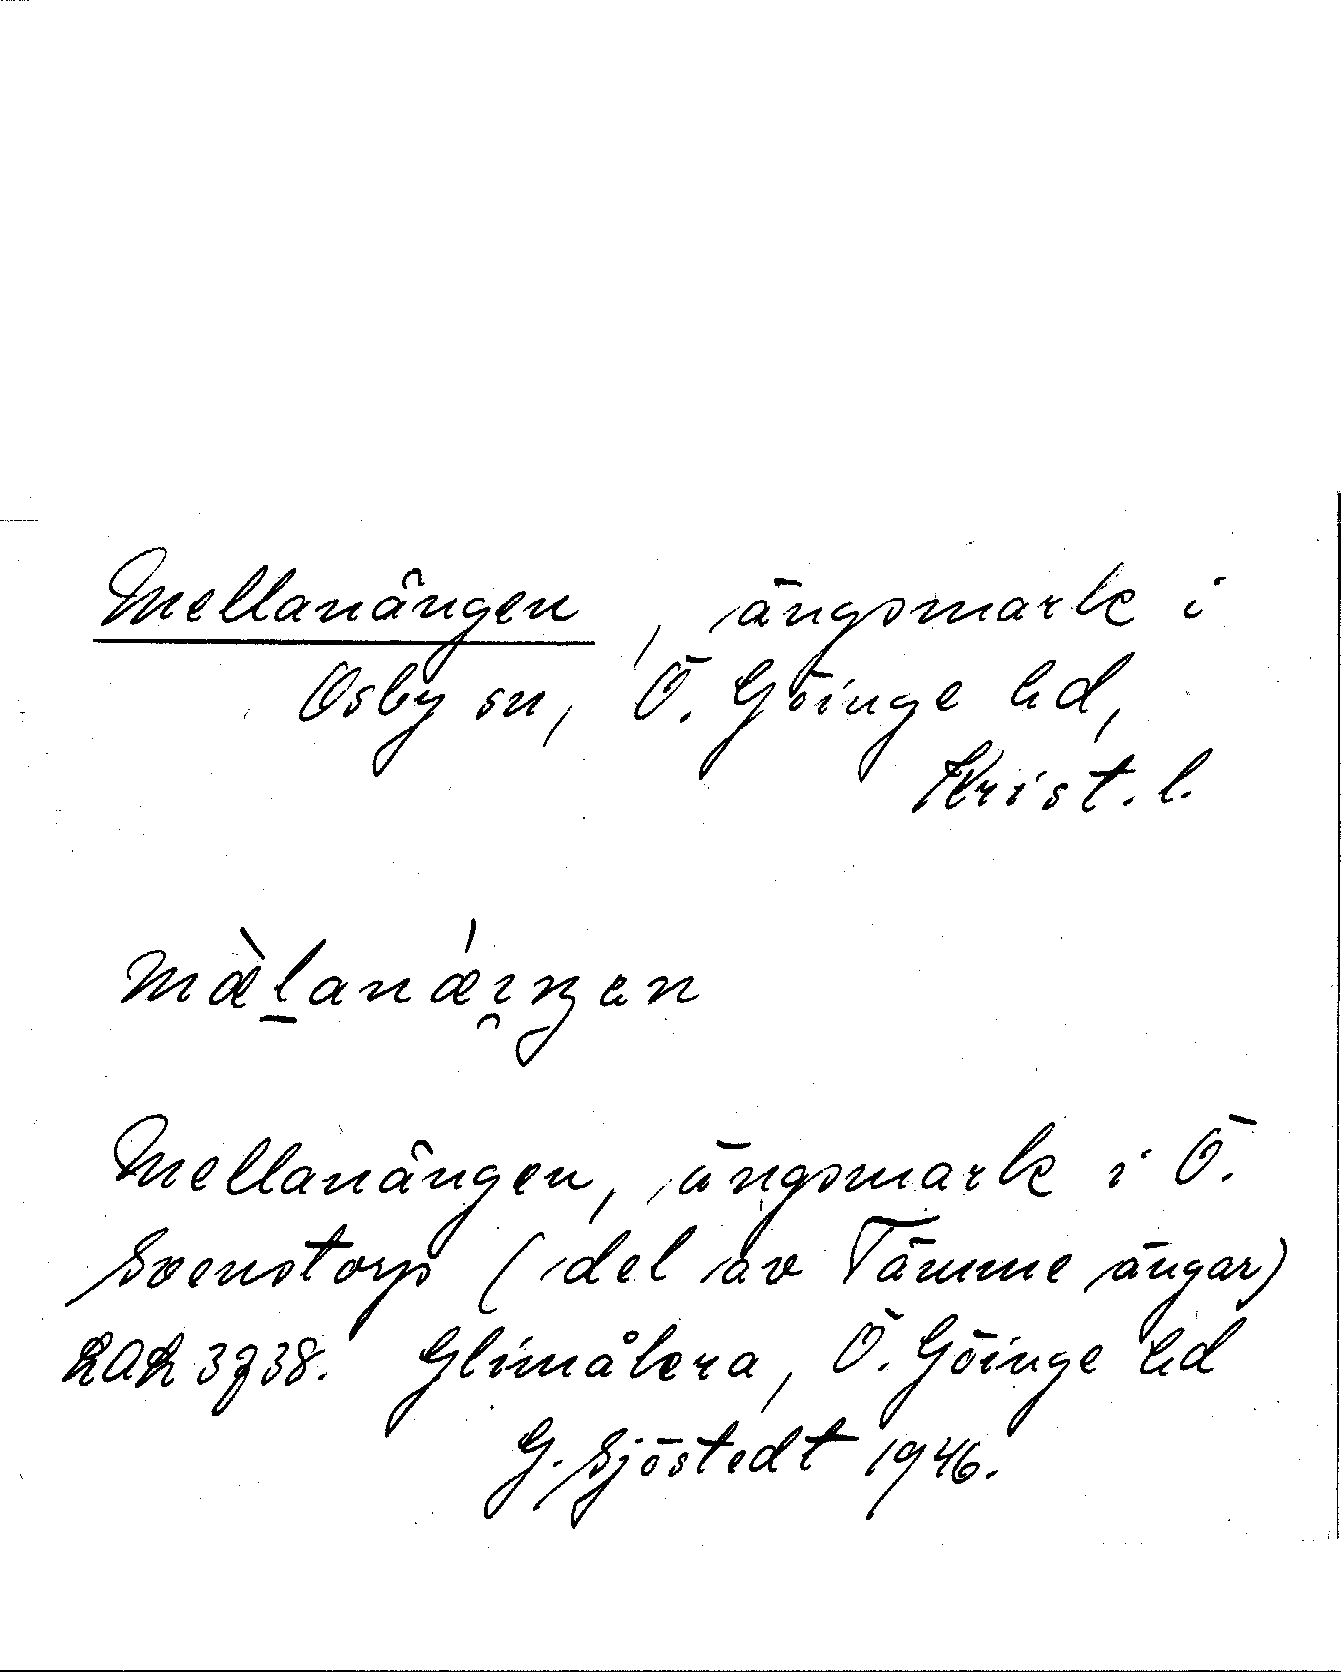 Mellanängen, ängsmark i
Osby sn, Ö. Göinge hd,
Krist. l.
Mellanängen, ängsmark i Ö.
Svenstorp (del av Tämme ängar)
3738. Glimåkra, Ö. Göinge hd
G. Sjöstedt 1946.